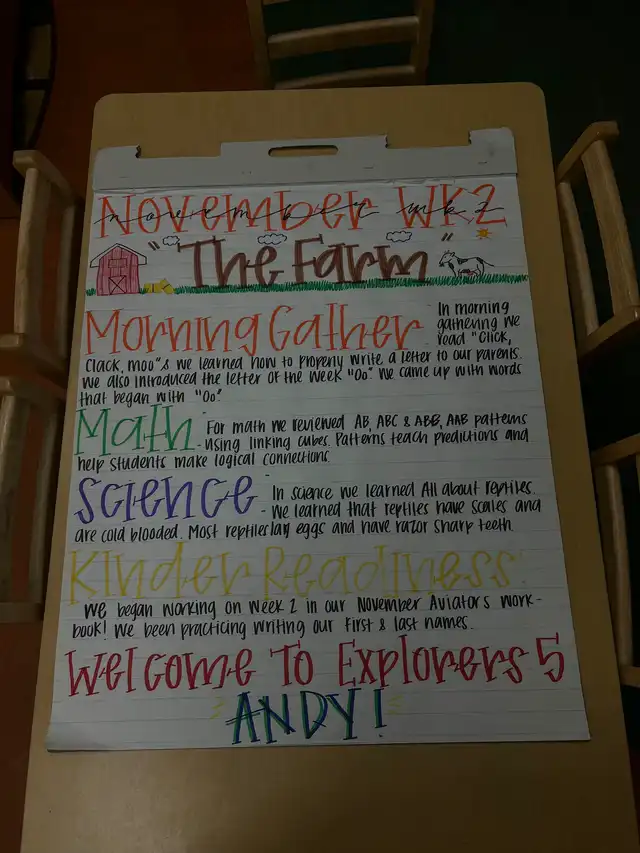 November WK2
november wk 2
"The Farm"
Morning Gather
In morning
gathering we
read "Click,
Clack, Moo" & we learned how to properly write a letter to our parents.
We also introduced the letter of the week "Oo". We came up with words
that began with "Oo"
Math
- For math we reviewed AB, ABC & ABB, AAB patterns
using linking cubes. Patterns teach predictions and
help students make logical connections.
Science
- In science we learned All about reptiles.
We learned that reptiles have scales and
are cold blooded. Most reptiles lay eggs and have razor sharp teeth.
Kinder Readiness
We began working on week 2 in our November Aviators work-
book! We been practicing writing our first & last names.
Welcome To Explorers 5
ANDY!